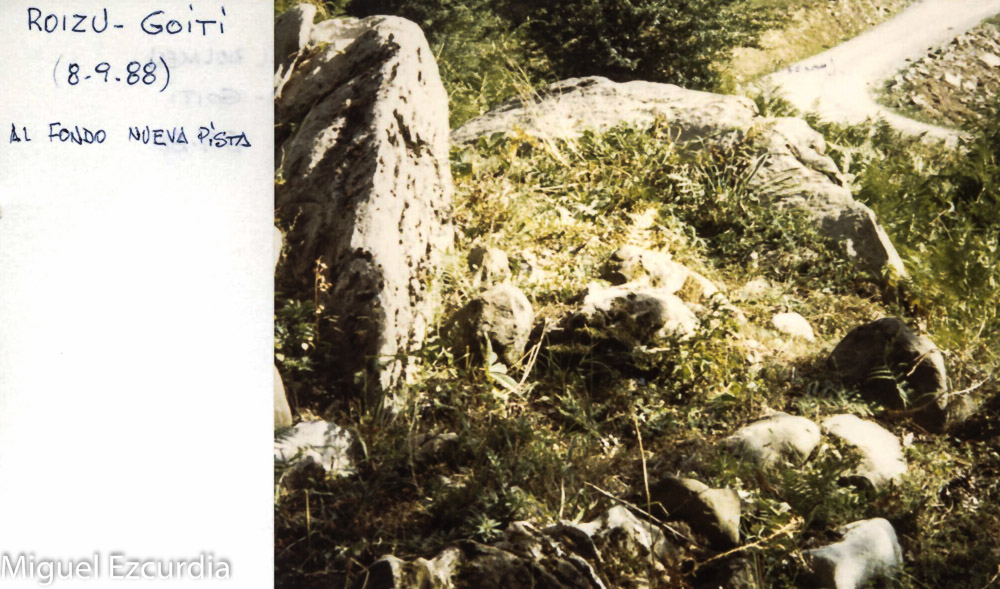 ROIZU - GOITI
(8-9-88)
AL FONDO NUEVA PISTA
Miguel Ezcurdia